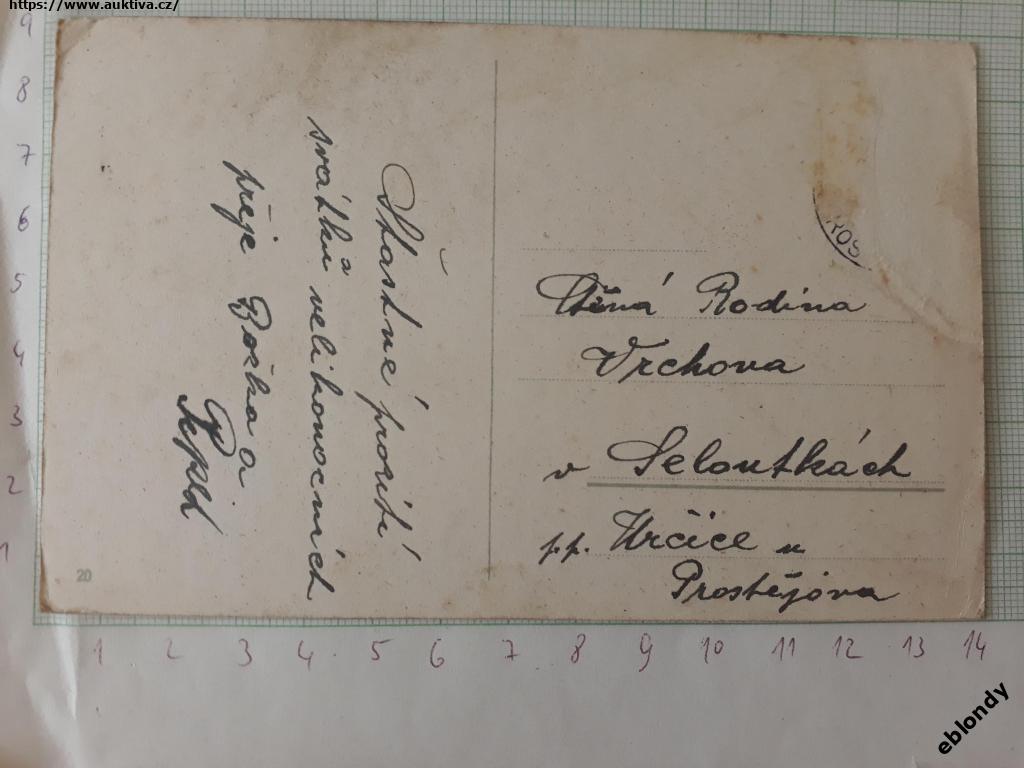 https://www.auktiva.cz/
Šťastné prožití
svátků velikonočních
přeje Božka a
Ctěná Rodina
Vrchova
v Seloutkách
p.p. Určice u
Prostějova
ROS
20
9
8
7
6
5
4
3
2
1
1 2 3 4 5 6 7 8 9 10 11 12 13 14
eblondy